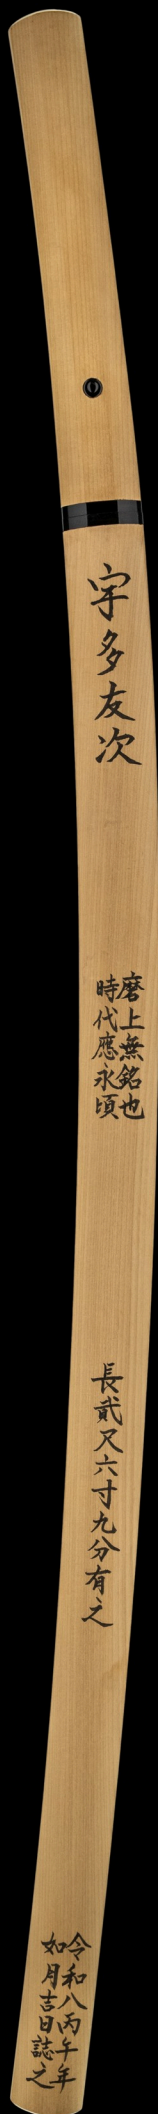 宇多友次
磨上無銘也
時代應永頃
長貳尺六寸九分有之
令和八丙午年
如月吉日誌之